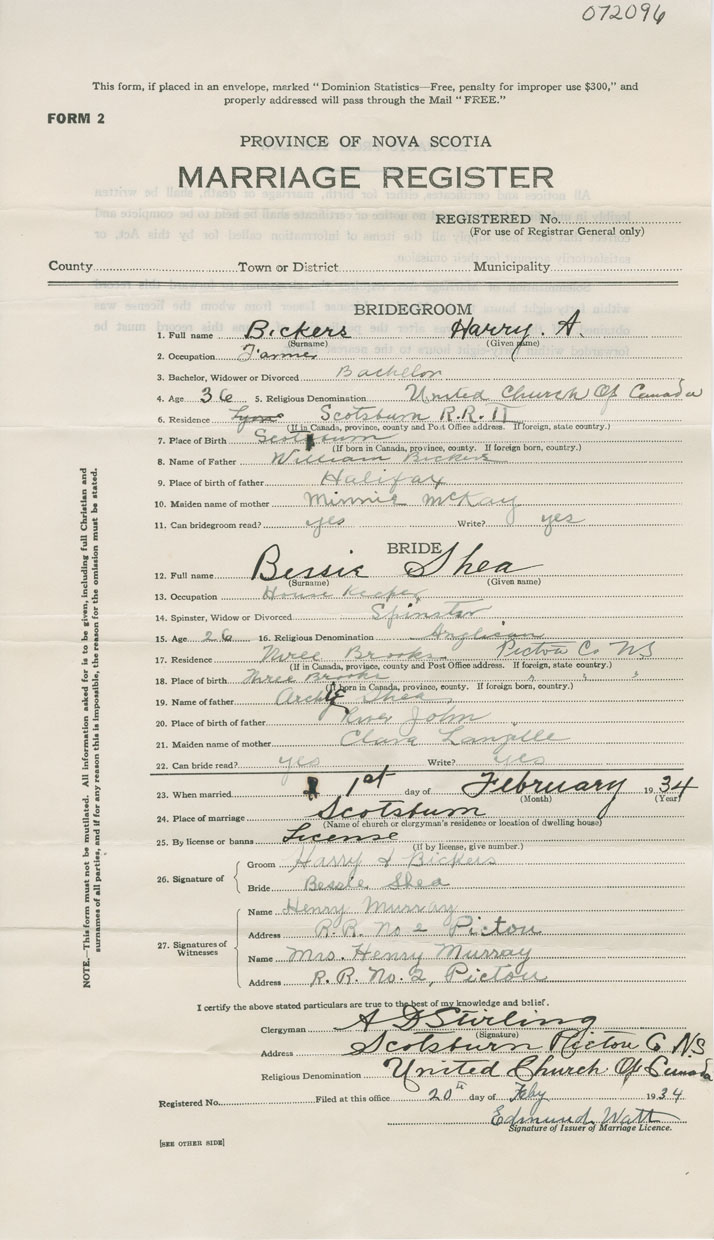 072096
This form, if placed in an envelope, marked "Dominion Statistics—Free, penalty for improper use $300," and
properly addressed will pass through the Mail "FREE."
FORM 2
PROVINCE OF NOVA SCOTIA
MARRIAGE REGISTER
REGISTERED No.
(For use of Registrar General only)
County Town or District Municipality
BRIDEGROOM
1. Full name Bickers Harry. A.
(Surname) (Given name)
2. Occupation Farmer
3. Bachelor, Widower or Divorced Bachelor
4. Age 36 5. Religious Denomination United Church Of Canada
6. Residence Scotsburn R.R. II
(If in Canada, province, county and Post Office address. If foreign, state country.)
7. Place of Birth Scotsburn
(If born in Canada, province, county. If foreign born, country.)
8. Name of Father William Bickers
9. Place of birth of father Halifax
10. Maiden name of mother Minnie McKay
11. Can bridegroom read? yes Write? yes
BRIDE
12. Full name Bessie Shea
(Surname) (Given name)
13. Occupation House Keeper
14. Spinster, Widow or Divorced Spinster
15. Age 26 16. Religious Denomination Anglican
17. Residence Three Brooks Pictou Co NS
(If in Canada, province, county and Post Office address. If foreign, state country.)
18. Place of birth Three Brooks " " "
(If born in Canada, province, county. If foreign born, country.)
19. Name of father Archie Shea
20. Place of birth of father River John
21. Maiden name of mother Clara Langille
22. Can bride read? yes Write? yes
23. When married 1st day of February 1934
(Month) (Year)
24. Place of marriage Scotsburn
(Name of church or clergyman's residence or location of dwelling house)
25. By license or banns License
(If by license, give number.)
26. Signature of
Groom Harry A Bickers
Bride Bessie Shea
27. Signatures of Witnesses
Name Henry Murray
Address R.R. No 2 Pictou
Name Mrs. Henry Murray
Address R.R. No. 2, Pictou
I certify the above stated particulars are true to the best of my knowledge and belief.
Clergyman A D Stirling
(Signature)
Address Scotsburn Pictou Co N.S
Religious Denomination United Church Of Canada
Registered No. Filed at this office 20th day of Feby 1934
Edmund Watt
Signature of Issuer of Marriage Licence.
[SEE OTHER SIDE]
NOTE.—This form must not be mutilated. All information asked for is to be given, including full Christian and
surnames of all parties, and if for any reason this is impossible, the reason for the omission must be stated.